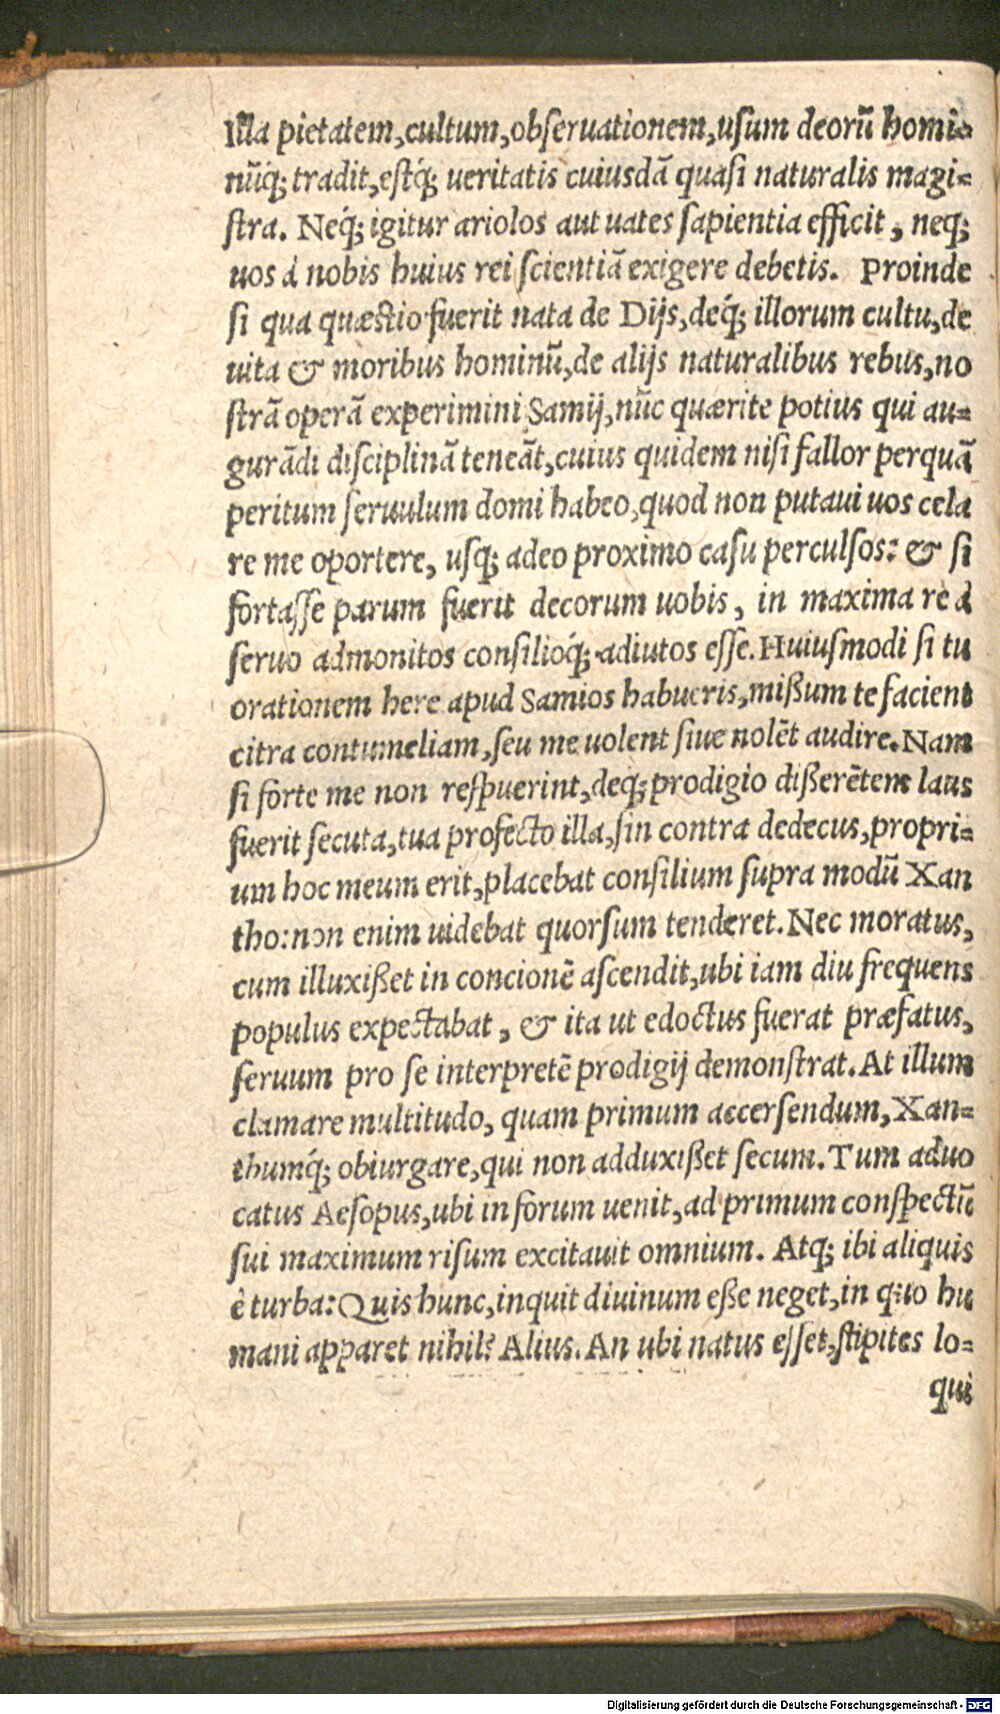 Illa pietatem,cultum,obſeruationem,uſum deorũ homi⸗
nũq́; tradit,eſtq́; ueritatis cuiusdã quaſi naturalis magi⸗
ſtra. Neq́; igitur ariolos aut uates ſapientia efficit , neq;
uos à nobis huius rei ſcientiã exigere debetis. Proinde
ſi qua quæſtio fuerit nata de Dijs,deq́; illorum cultu,de
uita & moribus hominũ,de alijs naturalibus rebus,no
ſtrã operã experimini Samij,nũc quærite potius qui au⸗
gurãdi diſciplinã teneãt,cuius quidem niſi fallor perquã
peritum ſeruulum domi habeo,quod non putaui uos cela
re me oportere, uſq; adeo proximo caſu perculſos: & ſi
fortaſſe parum fuerit decorum uobis, in maxima re à
ſeruo admonitos conſilioq́; adiutos eſſe. Huiuſmodi ſi tu
orationem here apud Samios habueris,mißum te facient
citra contumeliam,ſeu me uolent ſiue nolẽt audire. Nam
ſi forte me non reſpuerint,deq; prodigio dißerẽtem laus
fuerit ſecuta,tua profecto illa,ſin contra dedecus,propri⸗
um hoc meum erit,placebat conſilium ſupra modũ Xan
tho:non enim uidebat quorſum tenderet. Nec moratus,
cum illuxißet in concionẽ aſcendit,ubi iam diu frequens
populus expectabat , & ita ut edoctus fuerat præfatus,
ſeruum pro ſe interpretẽ prodigij demonſtrat. At illum
clamare multitudo, quam primum accerſendum, Xan⸗
thumq́; obiurgare,qui non adduxißet ſecum. Tum aduo
catus Aeſopus,ubi in forum uenit,ad primum conſpectũ
ſui maximum riſum excitauit omnium. Atq; ibi aliquis
è turba: Quis hunc,inquit diuinum eße neget,in quo hu
mani apparet nihil? Alius. An ubi natus eſſet,ſtipites lo⸗
qui
Digitalisierung gefördert durch die Deutsche Forschungsgemeinschaft - DFG